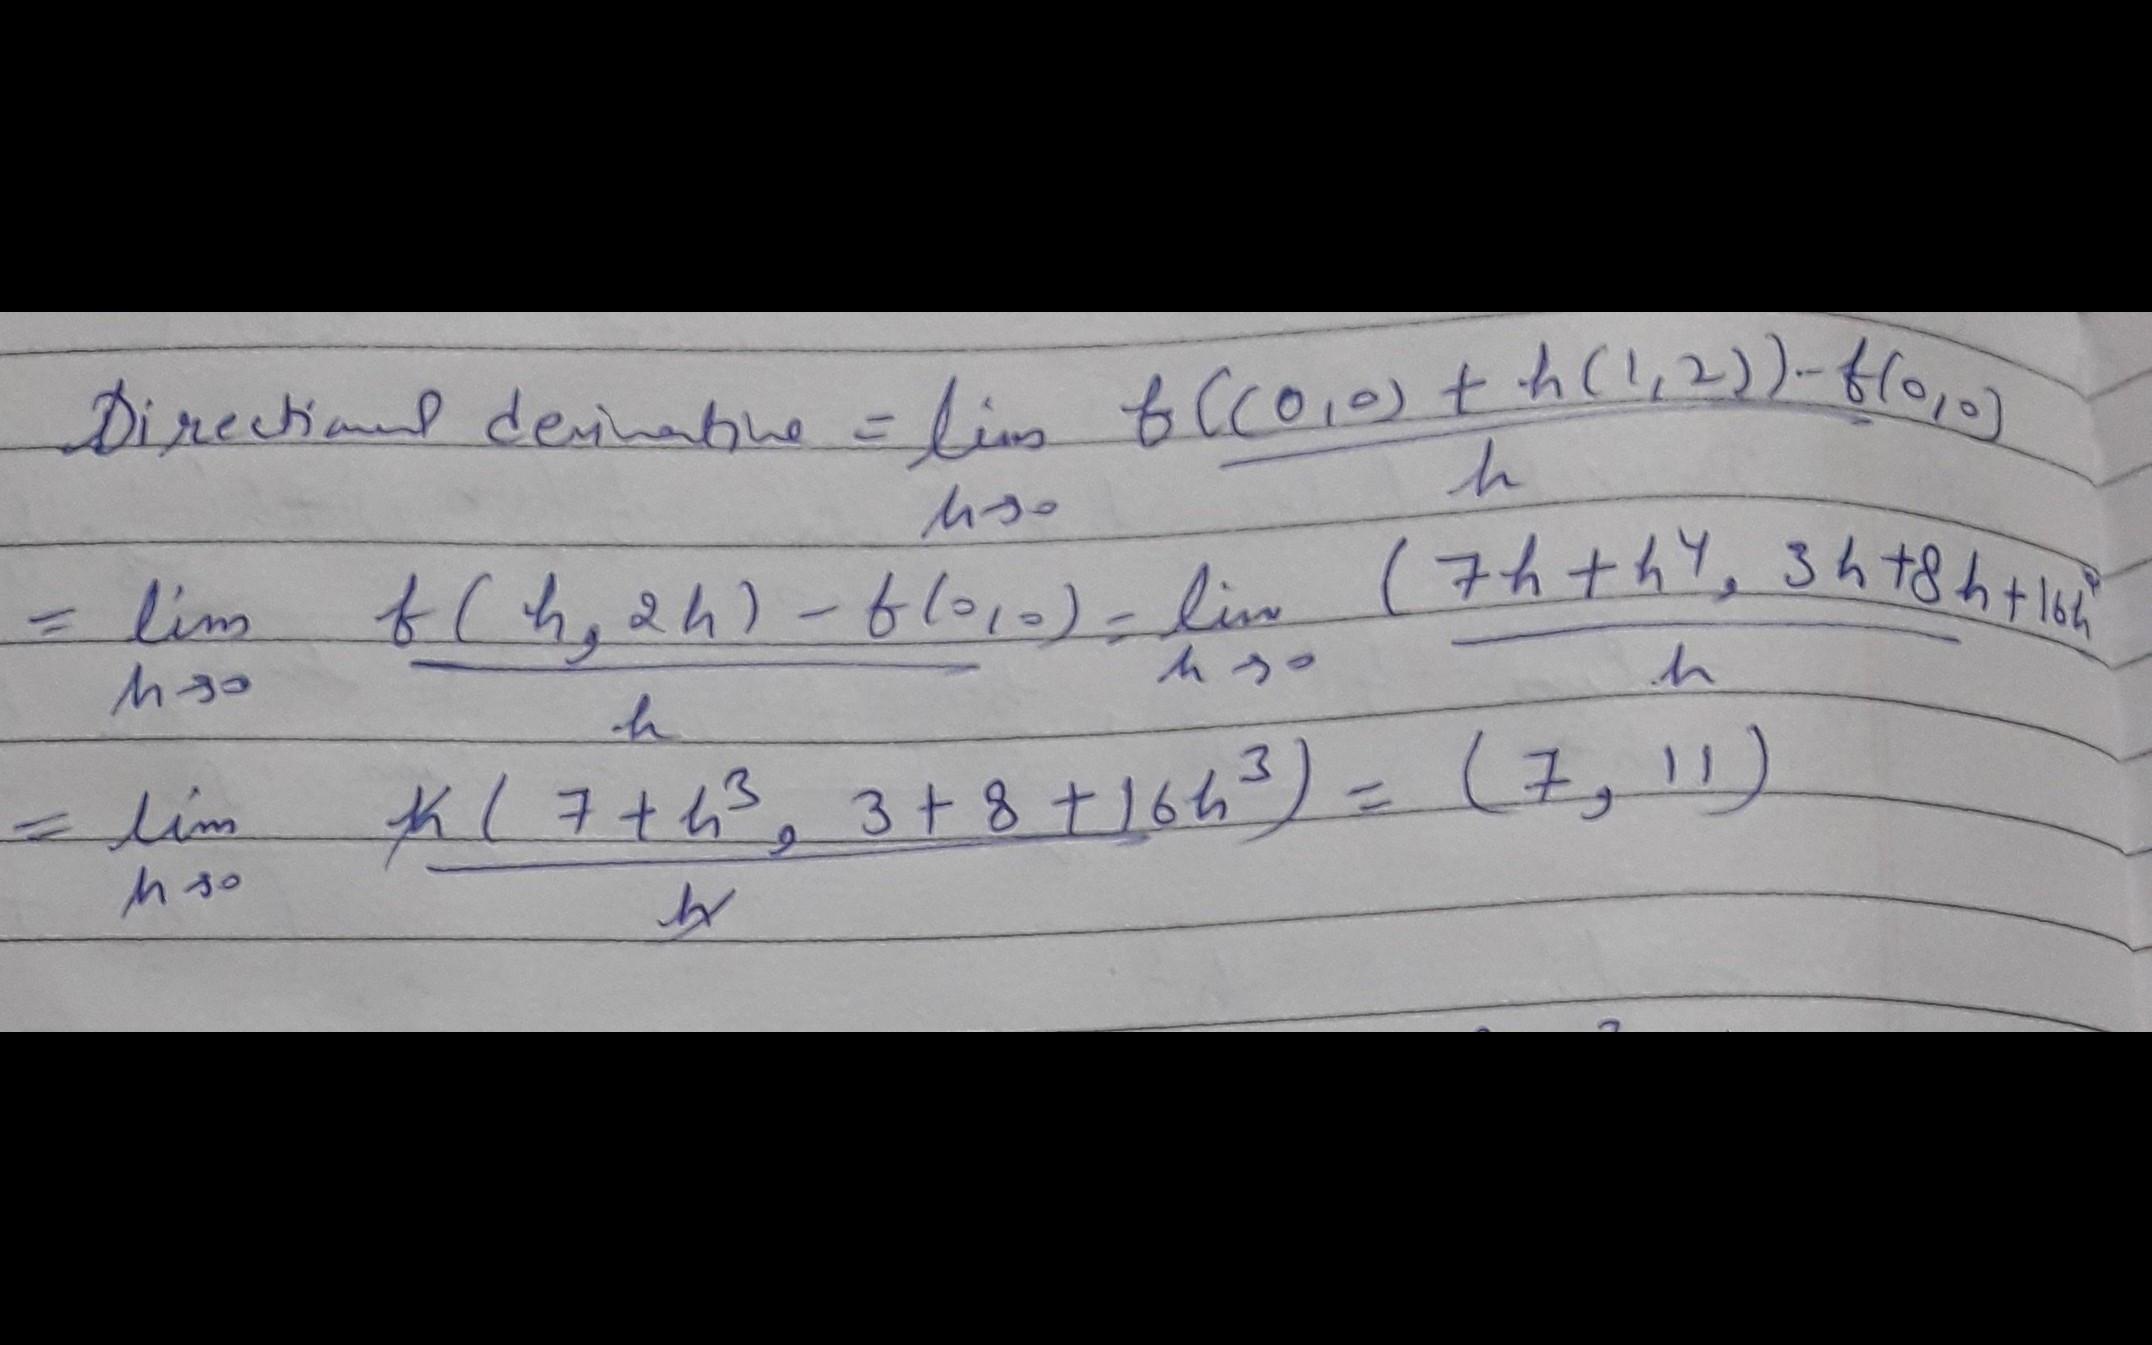 Directional derivative = lim h→0 f((0,0) + h(1,2)) - f(0,0) / h
= lim h→0 f(h, 2h) - f(0,0) / h = lim h→0 (7h + h⁴, 3h + 8h + 16h⁴ / h
= lim h→0 h(7 + h³, 3 + 8 + 16h³) / h = (7, 11)